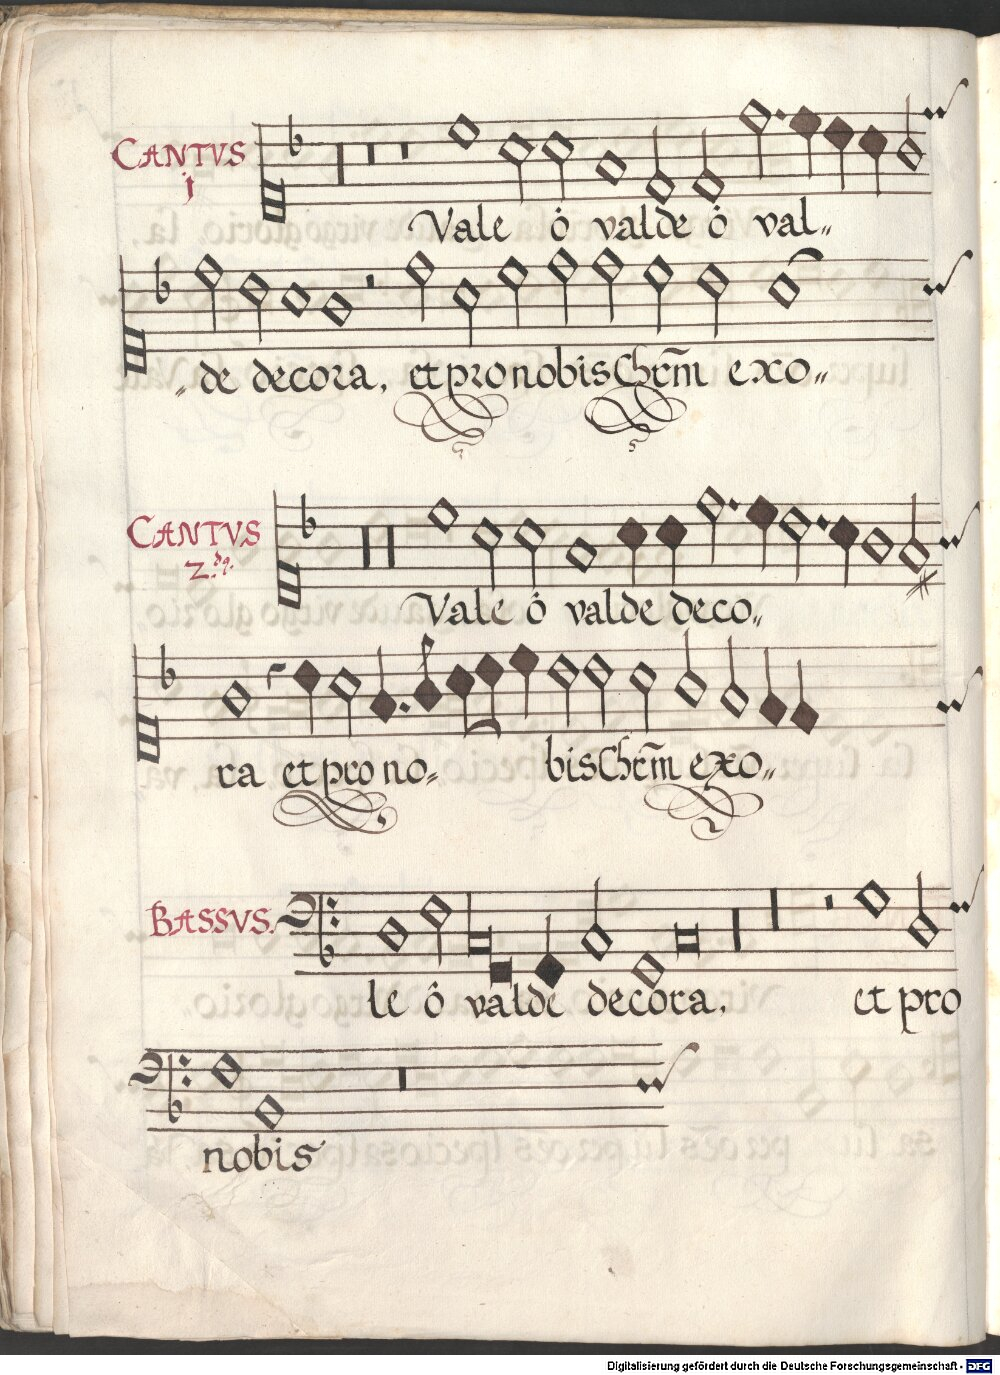 CANTVS
j
Vale ô valde ô val„
„de decora, et pro nobis Chrm̃ exo„
CANTVS
2.dq.
Vale ô valde deco„
ra et pro no„ bis Chrm̃ exo„
BASSVS.
le ô valde decora, et pro
nobis
Digitalisierung gefördert durch die Deutsche Forschungsgemeinschaft - DFG